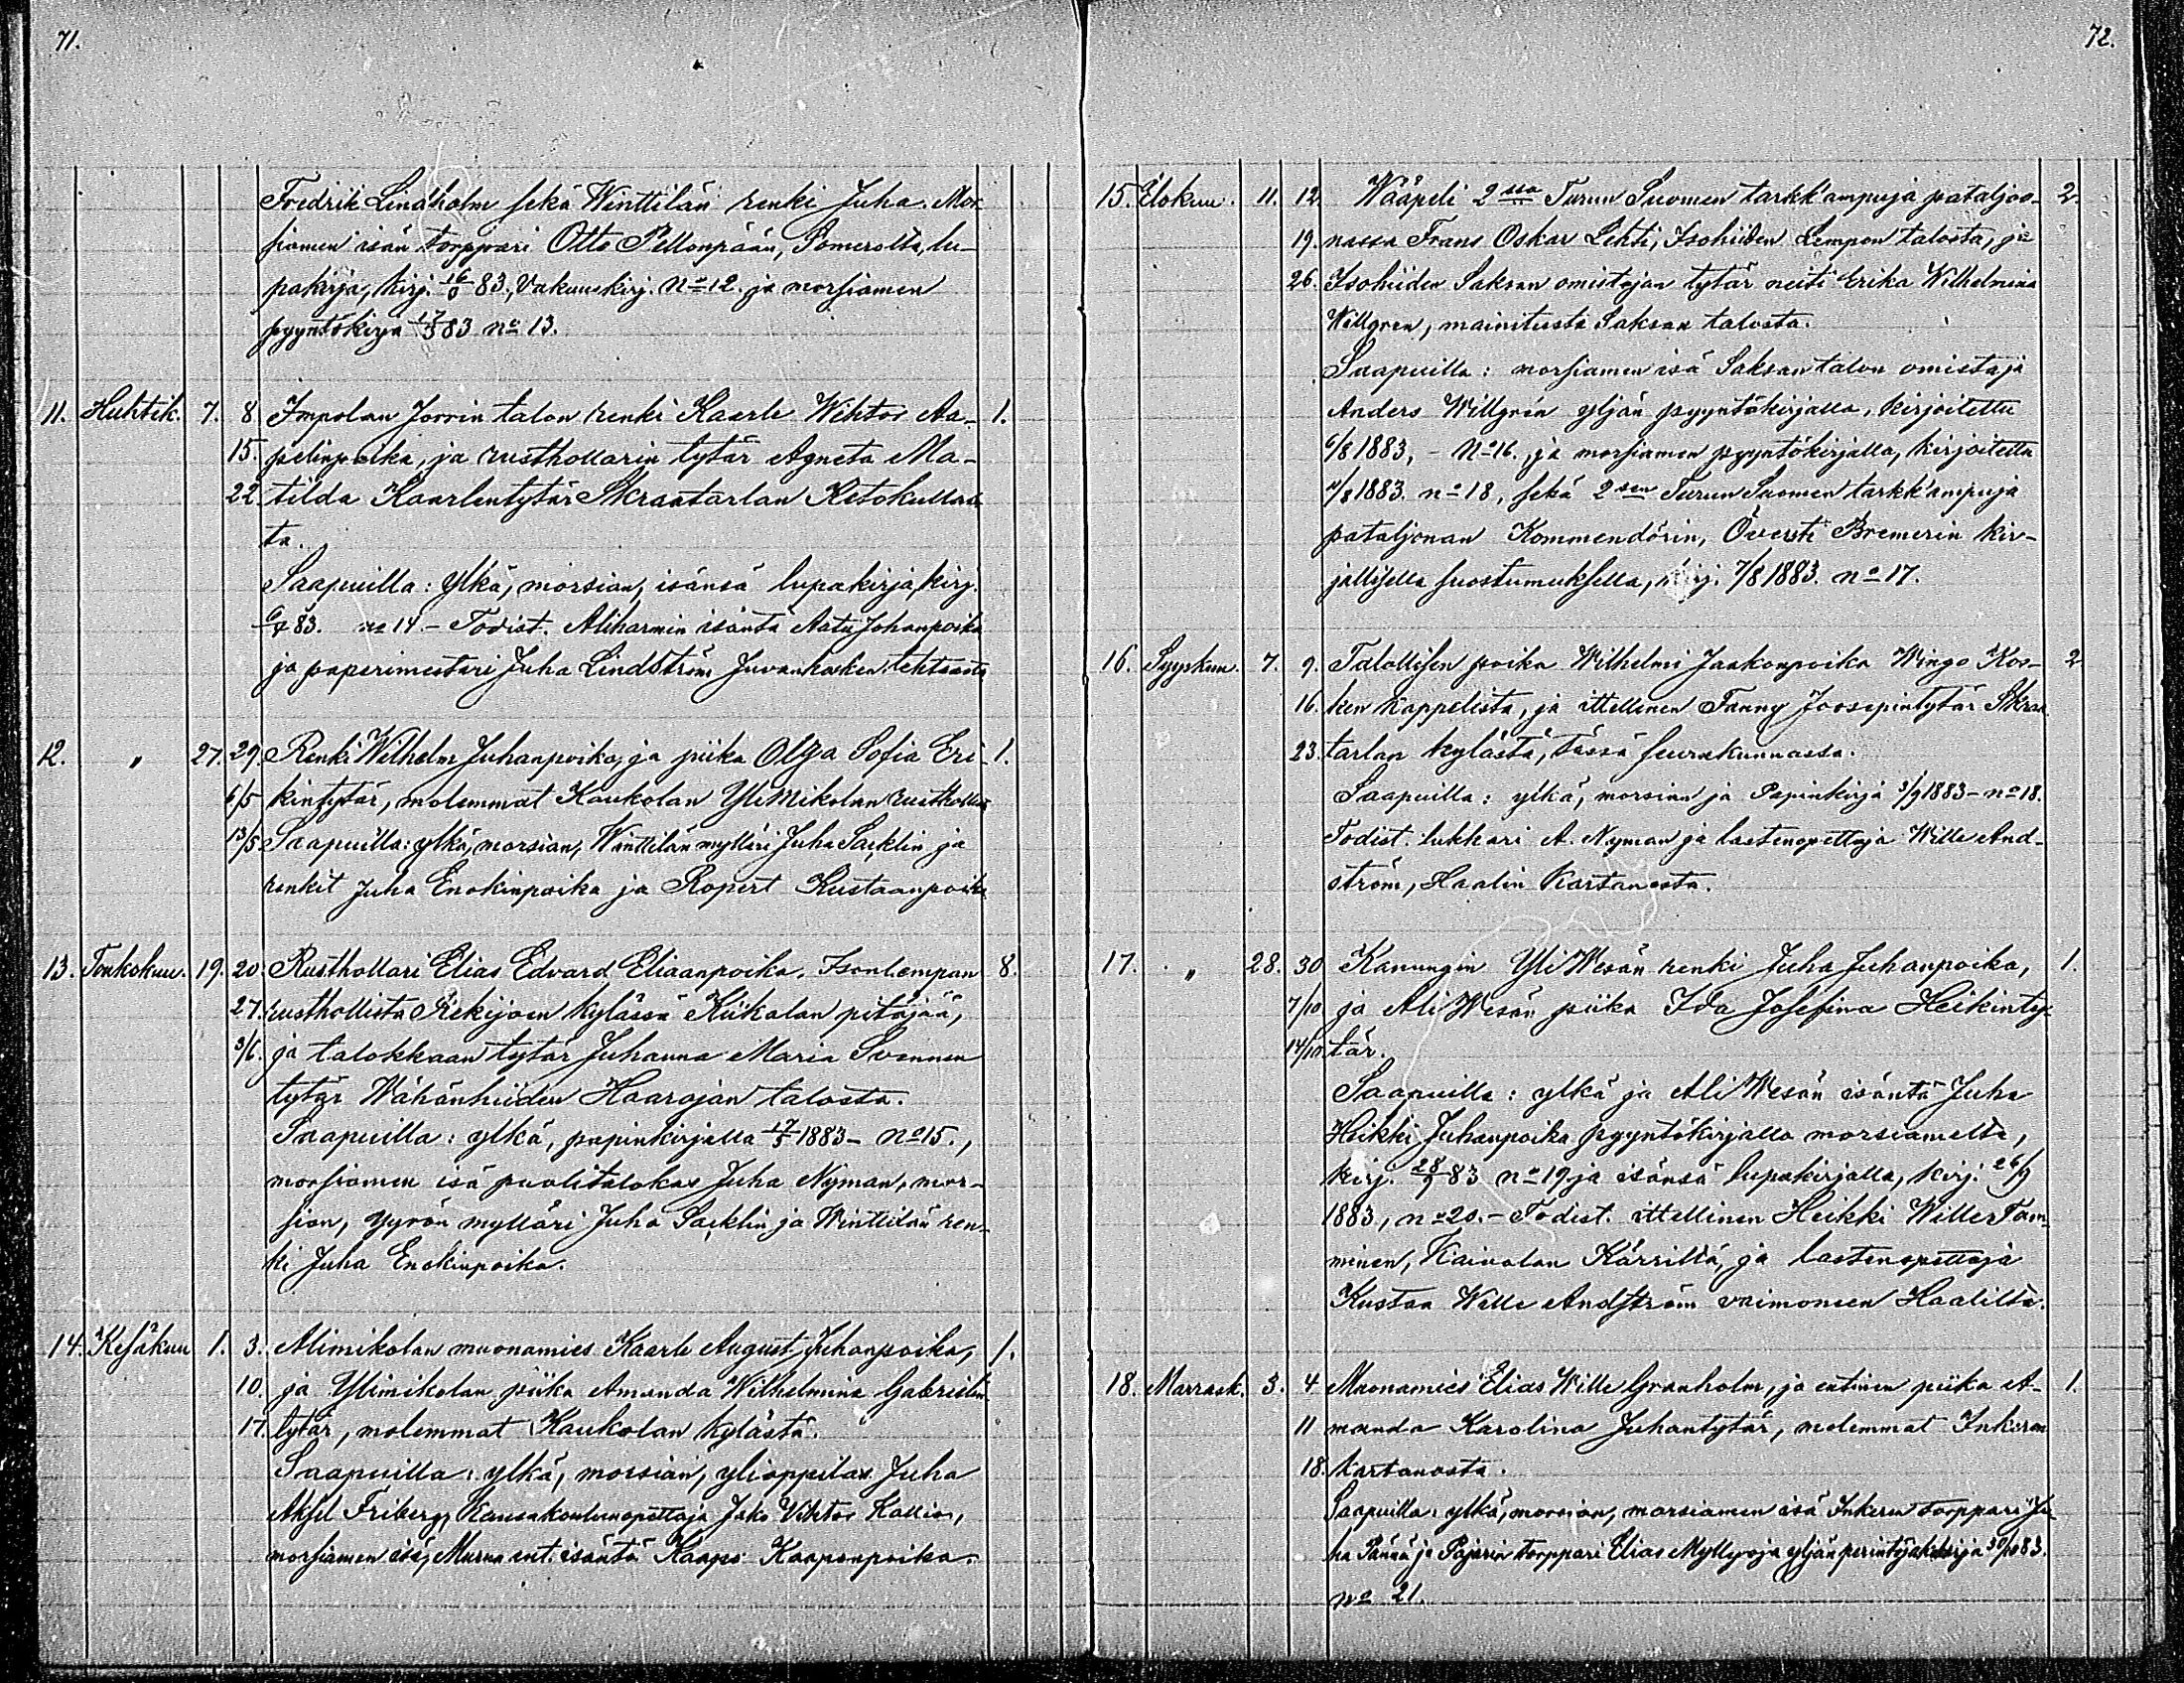 71.
Fredrik Lindholm sekä Winttilän renki Juha. Mor
siamen isän torppari Otto Pellonpään, Pomerolta, lu-
pakirja, kirj. 83, Vakuuskirj. No 12. ja morsiamen
pyyntökirja 17/3 83 no 13.
11. Huhtik. 7. 8. Impolan Jorrin talon renki Kaarle Wihtor Aa- 1.
15. pelinpoika, ja rusthollarin tytär Agneta Ma-
22. tilda Kaarlentytär Skraatarlan Ketokullas
ta.
Saapuilla: Ylkä, morsian, isänsä lupakirja, kirj.
83. no 14. - Todist. Aliharmin isäntä Aatu Johanpoika
ja paperimestari Juha Lindström Juvankosken tehtaasta
12. " 27. 29. Renki Wilhelm Juhanpoika, ja piika Olga Sofia Eri- 1.
6/5 kintytär, molemmat Kaukolan YliMikolan rusthollis
13/5 Saapuilla: ylkä, morsian, Winttilän mylläri Juha Säcklin ja
renkit Juha Enokinpoika ja Ropert Kustaanpoika
13. Toukokuu. 19. 20. Rusthollari Elias Edvard Eliaanpoika. Isonlempan 8.
27. rusthollista Rekijoen kylässä Kiikalan pitäjää,
3/6. ja talokkaan tytär Juhanna Maria Svennen
tytär Wähänhiiden Haarojan talosta.
Saapuilla: ylkä, papinkirjalla 17/5 1883 - No 15.,
morsiamen isä puolitalokas Juha Nyman, mor-
sian, Syrön mylläri Juha Säcklin ja Winttilän ren-
ki Juha Enokinpoika.
14. Kesäkuu 1. 3. Alimikolan muonamies Kaarle August Juhanpoika, 1.
10. ja Ylimikolan piika Amanda Wilhelmina Gabrielin
17. tytär, molemmat Kaukolan kylästä.
Saapuilla: ylkä, morsian, ylioppilas Juha
Aksel Friberg, Kansakoulunopettaja Jako Vihtor Kallio,
morsiamen isä, Murna ent. isäntä Kaapo Kaaponpoika.
72.
15. Elokuu. 11. 12. Wääpeli 2ssa Turun Suomen tarkk'ampuja pataljoo- 2.
19. nassa Frans Oskar Lehti, Isohiiden Lempon talosta, ja
26. Isohiiden Saksan omistajan tytär neiti Erika Wilhelmina
Willgren, mainitusta Saksan talosta.
Saapuilla: morsiamen isä Saksan talon omistaja
Anders Willgrén yljän pyyntökirjalla, kirjoitettu
6/8 1883, - No 16. ja morsiamen pyyntökirjalla, kirjoitettu
/8 1883. no 18, sekä 2sen Turun Suomen tarkk'ampuja
pataljonan Kommendörin, Översti Bremerin kir-
jallisella suostumuksella, kirj. 7/8 1883. no 17.
16. Syyskuu. 7. 9. Talollisen poika Wilhelmi Jaakonpoika Wingo Kos- 2
16. ken kappelista, ja ittellinen Fanny Joosepintytär Skraa
23. tarlan kylästä, tässä seurakunnassa.
Saapuilla: ylkä, morsian ja Papinkirja 3/9 1883 - no 18.
Todist. lukkari A. Nyman ja lastenopettaja Wille And-
ström, Haalin Kartanosta.
17. " 28. 30 Kanungin YliWesän renki Juha Juhanpoika, 1.
7/10 ja AliWesän piika Ida Josefina Heikinty-
14/10 tär.
Saapuilla: ylkä ja AliWesän isäntä Juha
Heikki Juhanpoika pyyntökirjalla morsiamelta,
kirj. 28/9 83 no 19. ja isänsä lupakirjalla, kirj. 26/9
1883, no 20. - Todist. ittellinen Heikki Wille Tam-
minen, Kaivolan Kärriltä, ja lastenopettaja
Kustaa Wille Andström vaimoneen Haalilta.
18. Marrask. 3. 4 Muonamies Elias Wille Granholm, ja entinen piika A- 1.
11 manda Karolina Juhantytär, molemmat Inkeren
18. kartanosta.
Saapuilla: ylkä, morsian, morsiamen isä Inkeren torppari Ju
ha Pännä ja Pajarin torppari Elias Myllyoja yljän perintöjakokirja 30/10 83.
no 21.